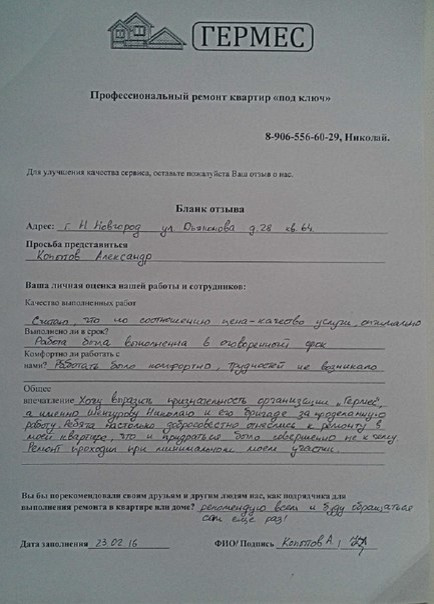 ГЕРМЕС
Профессиональный ремонт квартир «под ключ»
8-906-556-60-29, Николай.
Для улучшения качества сервиса, оставьте пожалуйста Ваш отзыв о нас.
Бланк отзыва
Адрес: г. Н. Новгород ул Дьяконова д. 28 кв. 64
Просьба представиться
Копытов Александр
Ваша личная оценка нашей работы и сотрудников:
Качество выполненных работ
Считаю, что по соотношению цена-качество услуги, оптимально
Выполнено ли в срок?
Работа была выполнена в оговоренный срок
Комфортно ли работать с
нами? Работать было комфортно, трудностей не возникало
Общее
впечатление Хочу выразить признательность организации „Гермес",
а именно Николаю и его бригаде за проделанную
работу. Ребята настолько добросовестно отнеслись к ремонту в
моей квартире, что и придраться было совершенно не к чему.
Ремонт проходил при минимальном моем участии.
Вы бы порекомендовали своим друзьям и другим людям нас, как подрядчика для
выполнения ремонта в квартире или доме? рекомендую всем и буду обращаться
сам еще раз!
Дата заполнения 23.02.16 ФИО/ Подпись Копытов А. /